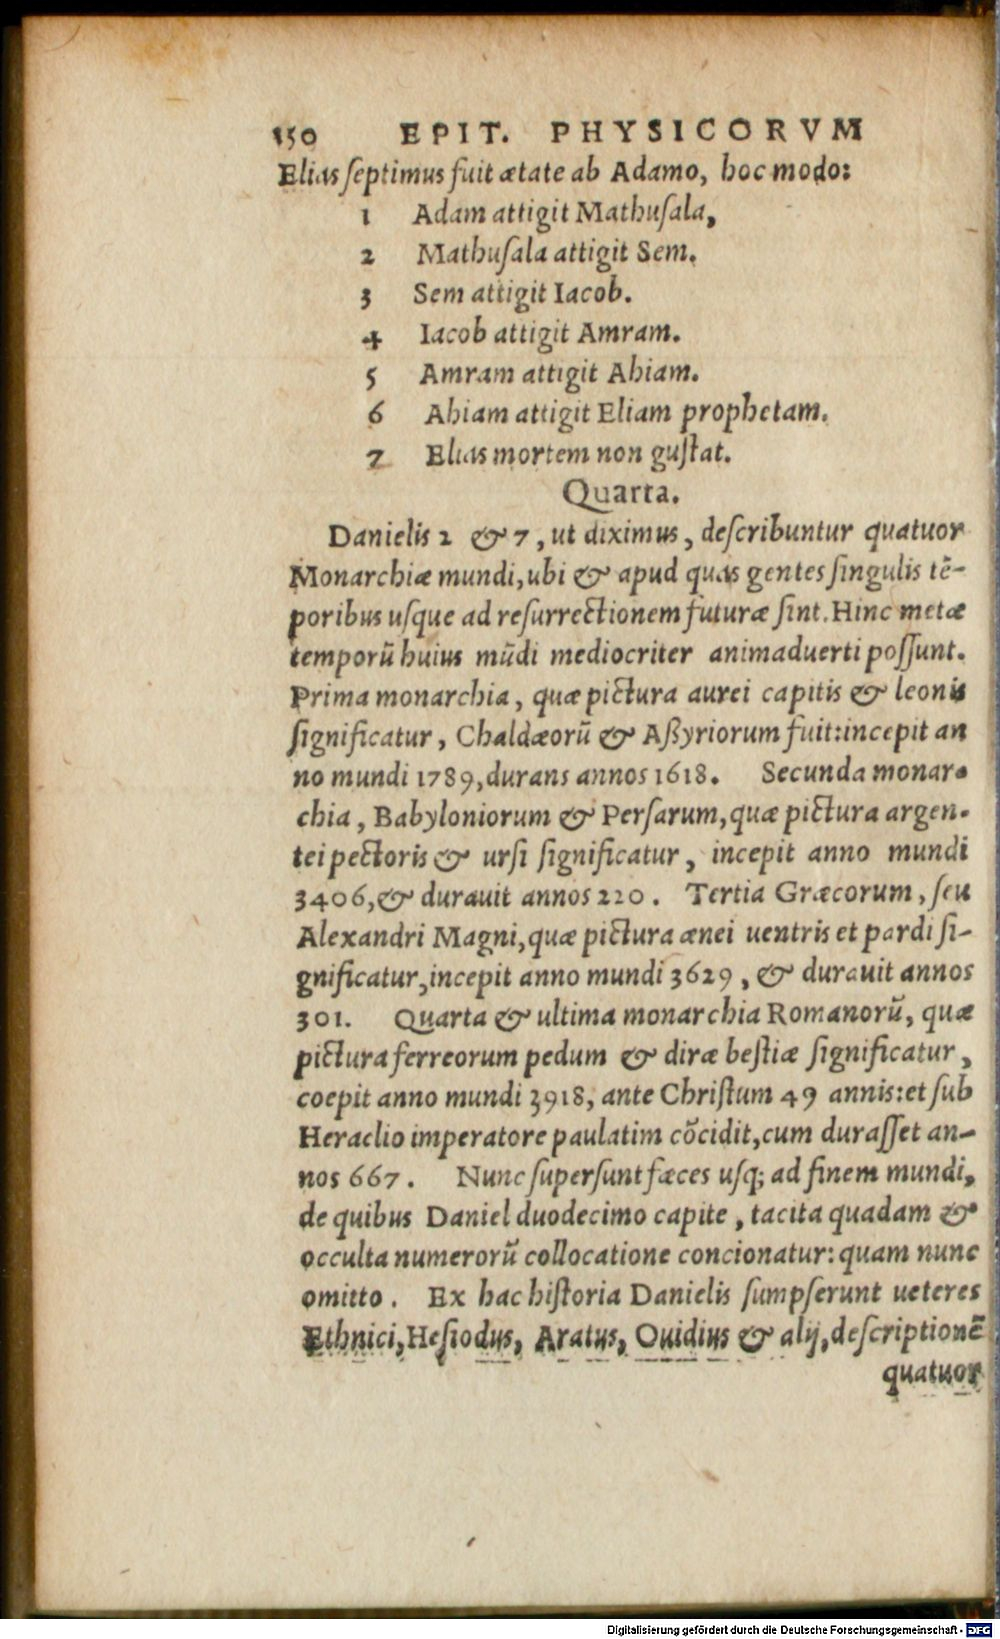 150 EPIT. PHYSICORVM
Elias ſeptimus fuit ætate ab Adamo, hoc modo:
1 Adam attigit Mathuſala,
2 Mathuſala attigit Sem.
3 Sem attigit Iacob.
4 Iacob attigit Amram.
5 Amram attigit Ahiam.
6 Ahiam attigit Eliam prophetam.
7 Elias mortem non guſtat.
Quarta.
Danielis 2 & 7, ut diximus, deſcribuntur quatuor
Monarchiæ mundi, ubi & apud quas gentes ſingulis tē-
poribus uſque ad reſurrectionem futuræ ſint. Hinc metæ
temporū huius mūdi mediocriter animaduerti poſſunt.
Prima monarchia, quæ pictura aurei capitis & leonis
ſignificatur, Chaldæorū & Aßyriorum fuit: incepit an
no mundi 1789, durans annos 1618. Secunda monar-
chia, Babyloniorum & Perſarum, quæ pictura argen-
tei pectoris & urſi ſignificatur, incepit anno mundi
3406, & durauit annos 220. Tertia Græcorum, ſeu
Alexandri Magni, quæ pictura ænei uentris et pardi ſi-
gnificatur, incepit anno mundi 3629, & durauit annos
301. Quarta & ultima monarchia Romanorū, quæ
pictura ferreorum pedum & diræ beſtiæ ſignificatur,
coepit anno mundi 3918, ante Chriſtum 49 annis: et ſub
Heraclio imperatore paulatim cōcidit, cum duraſſet an-
nos 667. Nunc ſuperſunt fæces uſq; ad finem mundi,
de quibus Daniel duodecimo capite, tacita quadam &
occulta numerorū collocatione concionatur: quam nunc
omitto. Ex hac hiſtoria Danielis ſumpſerunt ueteres
Ethnici, Heſiodus, Aratus, Ouidius & alij, deſcriptionē
quatuor
Digitalisierung gefördert durch die Deutsche Forschungsgemeinschaft - DFG